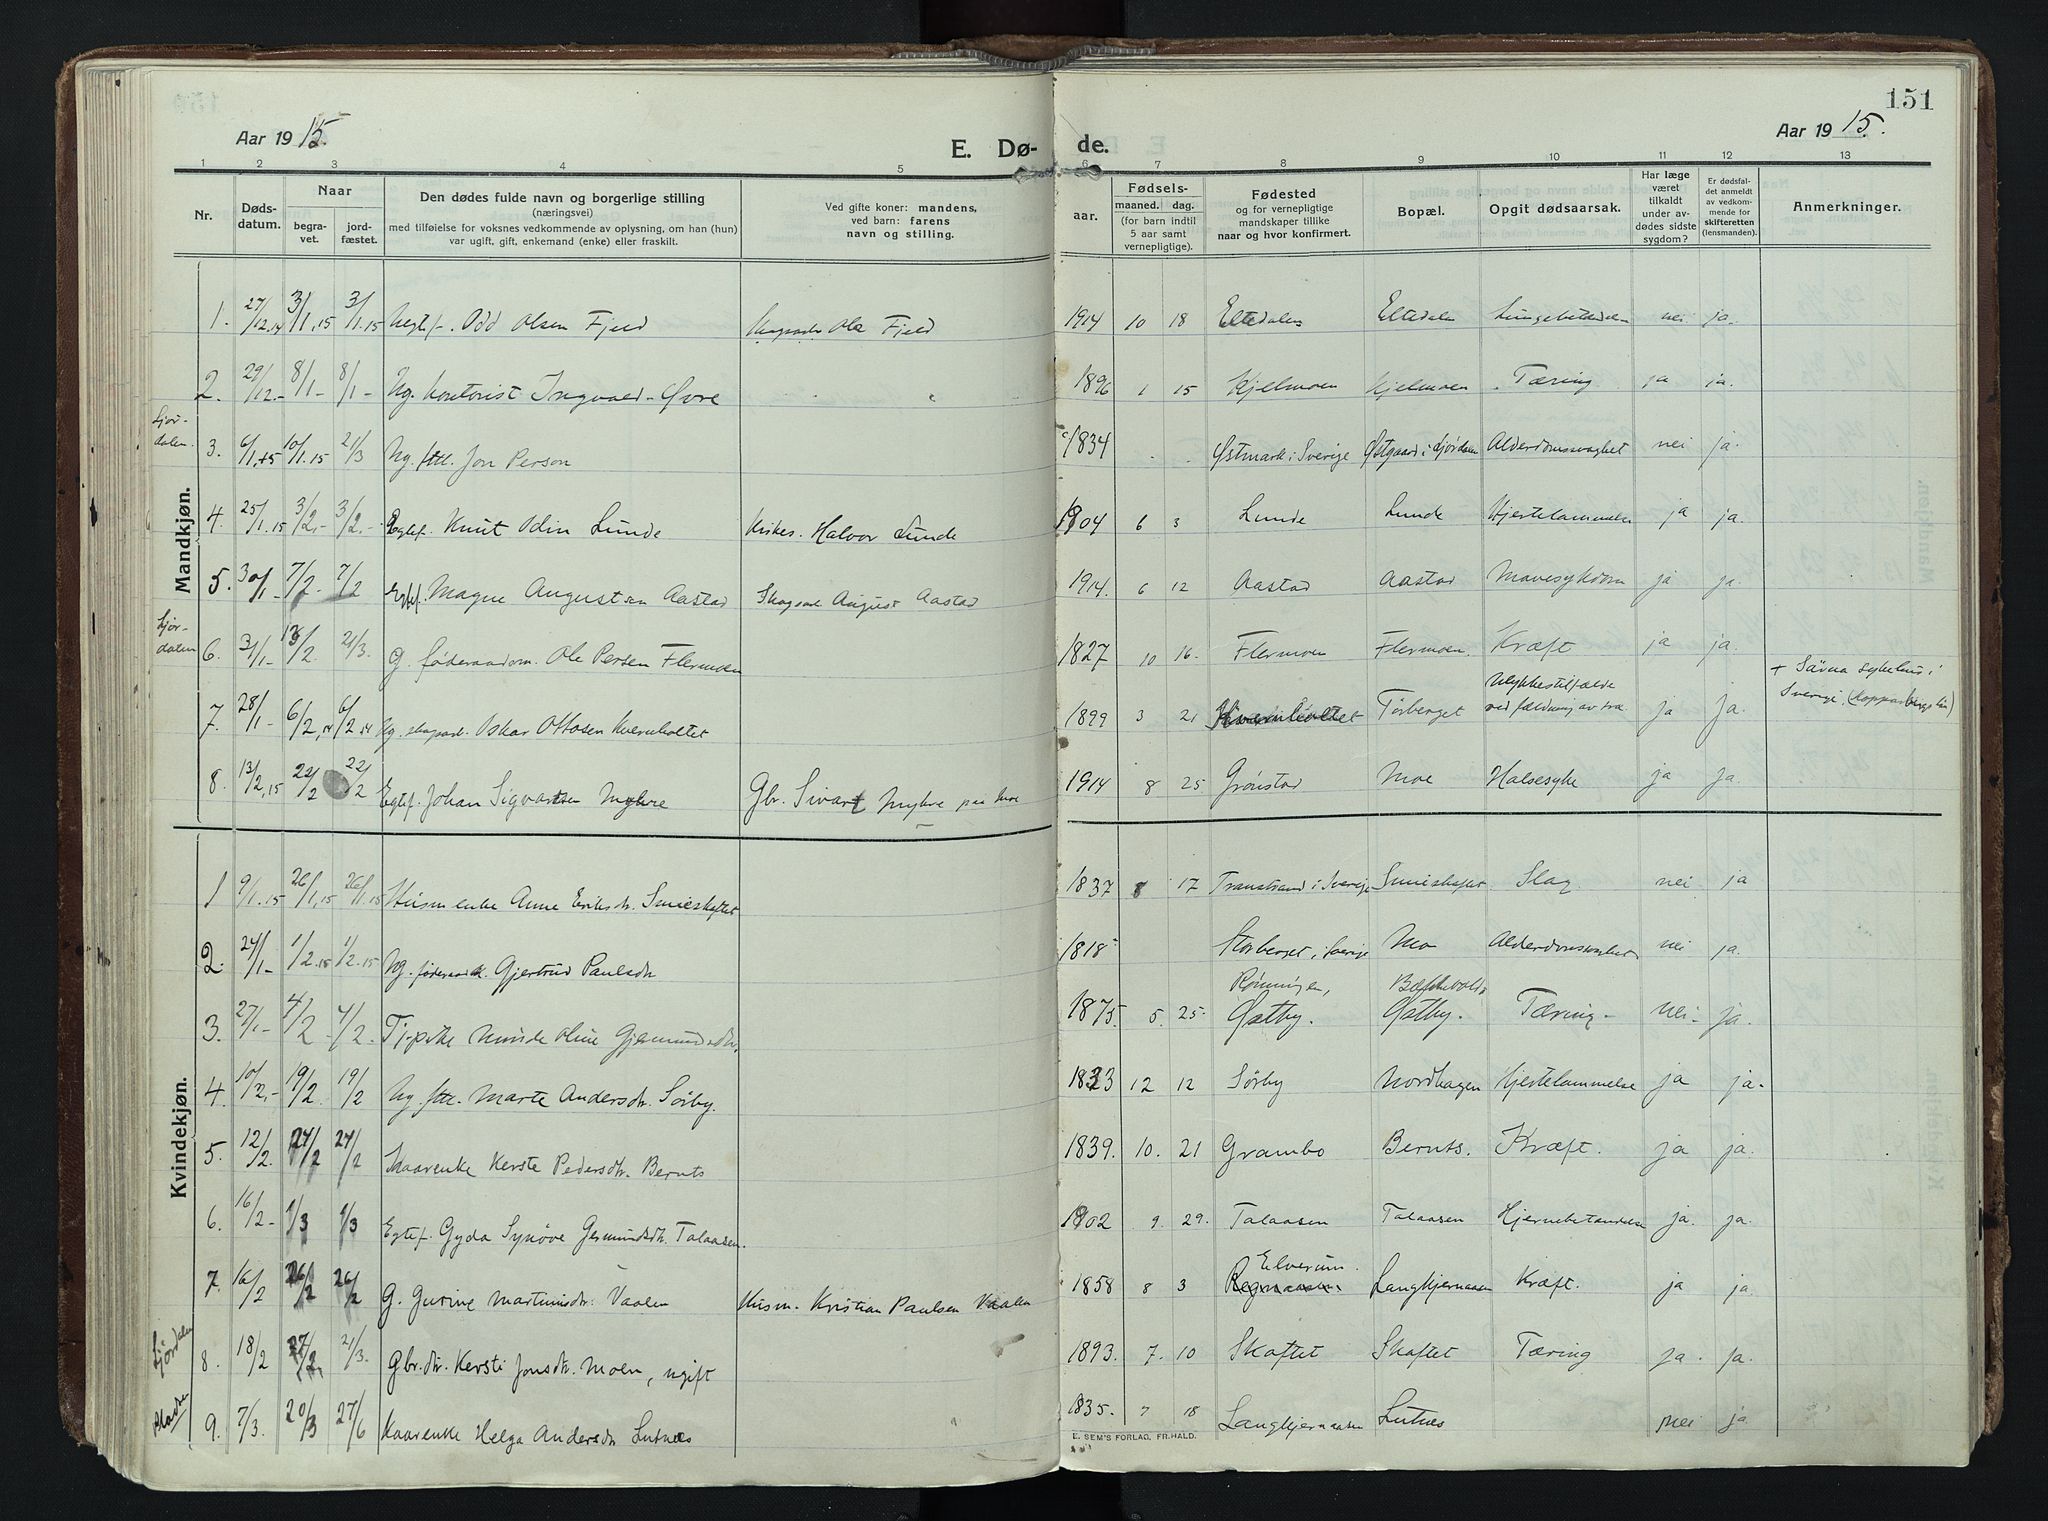 151
Aar 1915.
E. Dø-
de.
Aar 1915.
1 2 3 4 5
6 7 8 9 10 11 12 13
Nr.
Døds-
datum.
Naar
begra-
vet.
jord-
fæstet.
Den dødes fulde navn og borgerlige stilling
(næringsvei)
med tilføielse for voksnes vedkommende av oplysning, om han (hun)
var ugift, gift, enkemand (enke) eller fraskilt.
Ved gifte koner: mandens,
ved barn: farens
navn og stilling.
aar.
Fødsels-
maaned. dag.
(for barn indtil
5 aar samt
vernepligtige).
Fødested
og for vernepligtige
mandskaper tillike
naar og hvor konfirmert.
Bopæl.
Opgit dødsaarsak.
Har læge
været
tilkaldt
under av-
dødes sidste
sygdom?
Er dødsfal-
det anmeldt
av vedkom-
mende for
skifteretten
(lensmanden).
Anmerkninger.
Mandkjøn.
1. 27/12.14 3/1.15 3/1.15 Egtef. Odd Olsen Fjeld Ole Fjeld 1914 10 18 Eltdalen Eltdalen nei ja.
2. 29/12.- 8/1- 8/1- Ug. kontorist Ingvald Øvre 1896 1 15 Kjelmoen Kjelmoen Tæring ja ja.
Ljør-
dalen.
3. 6/1.15 10/1.15 21/3 Ug. fttl. Jon Person 1834 Østmark i Sverige Østgaard i Ljørdalen Alderdomssvaghet nei ja.
4. 25/1.15 3/2.- 3/2.- Egtef. Knut Odin Lunde Kirkes. Halvor Lunde 1904 6 3 Lunde Lunde Hjertelammelse ja ja.
5. 30/1- 7/2- 7/2 Egtef. Magne Augustsen Aastad Skogsarb. August Aastad 1914. 6 12 Aastad Aastad Mavesykdom ja ja.
Ljør-
dalen
6. 31/1- 13/2. 21/3. G. føderaadsm. Ole Persen Flermoen 1827 10 16. Flermoen Flermoen. Kræft ja ja.
+ Särna sykehus i
Sverige. (Kopparbergs län)
Ulykkestilfælde
7. 28/1- 6/2.14 6/2.14 Ug. skogsarb. Oskar Ottosen Kvernholtet 1899 3 21 Kvernholtet Törberget ved fældning av træ. ja ja.
8. 13/2.15 22/2 22/2 Egtef. Johan Sigvartsen Myhre Gbr. Sivart Myhre paa Moe 1914 8 25 Grønstad Moe Halsesyke ja ja.
Kvindekjøn.
1 9/1.15 26/1.15 26/1.15 Husm.enke Anne Eriksdr. Smieskaftet 1837 8 17 Transtrand i Sverige Smieskaftet Slag. nei ja
2. 24/1- 1/2.15 1/2.15 Ug. føderaadsk. Gjertrud Paulsdtr 1818 Störberget i Sverige Mo Alderdomssvaghet nei ja.
Rønningen,
3. 27/1- 4/2 4/2. Oline Gjermundsdtr. 1875. 5. 25. Østby. Østby. Tæring- nei- ja.
4. 10/2.- 19/2. 19/2 Ug. fttl. Marte Andersdtr. Sørby. 1823 12 12 Sørby Nordhagen Hjertelammelse ja ja.
5. 12/2. 24/2 24/2 Kaarenke Kerste Pedersdtr. Bernts 1839. 10. 21 Grambo Bernts. Kræft. ja ja.
6. 16/2- 1/3 1/3 Egtef. Gyda Synøve Germundsdtr. Talaasen. 1902 9. 29. Talaasen Talaasen Hjernebetændelse ja. ja.
Elverum.
7. 16/2 26/2 26/2 G. Gurine Martinusdtr. Vaalen Husm. Kristian Paulsen Vaalen 1858 8 3 Langkjernaasen Kræft. ja ja.
Ljørdalen
8. 18/2 27/2. 21/3. Gbr.dtr. Kersti Jonsdtr. Moen, ugift 1893. 7. 10 Skaftet Skaftet Tæring ja. ja.
9. 7/3. 20/3 27/6 Kaarenke Helga Andersdtr Lutnes 1835. 7 18 Langkjernaasen Lutnes nei ja
E. SEM'S FORLAG, FR.HALD.